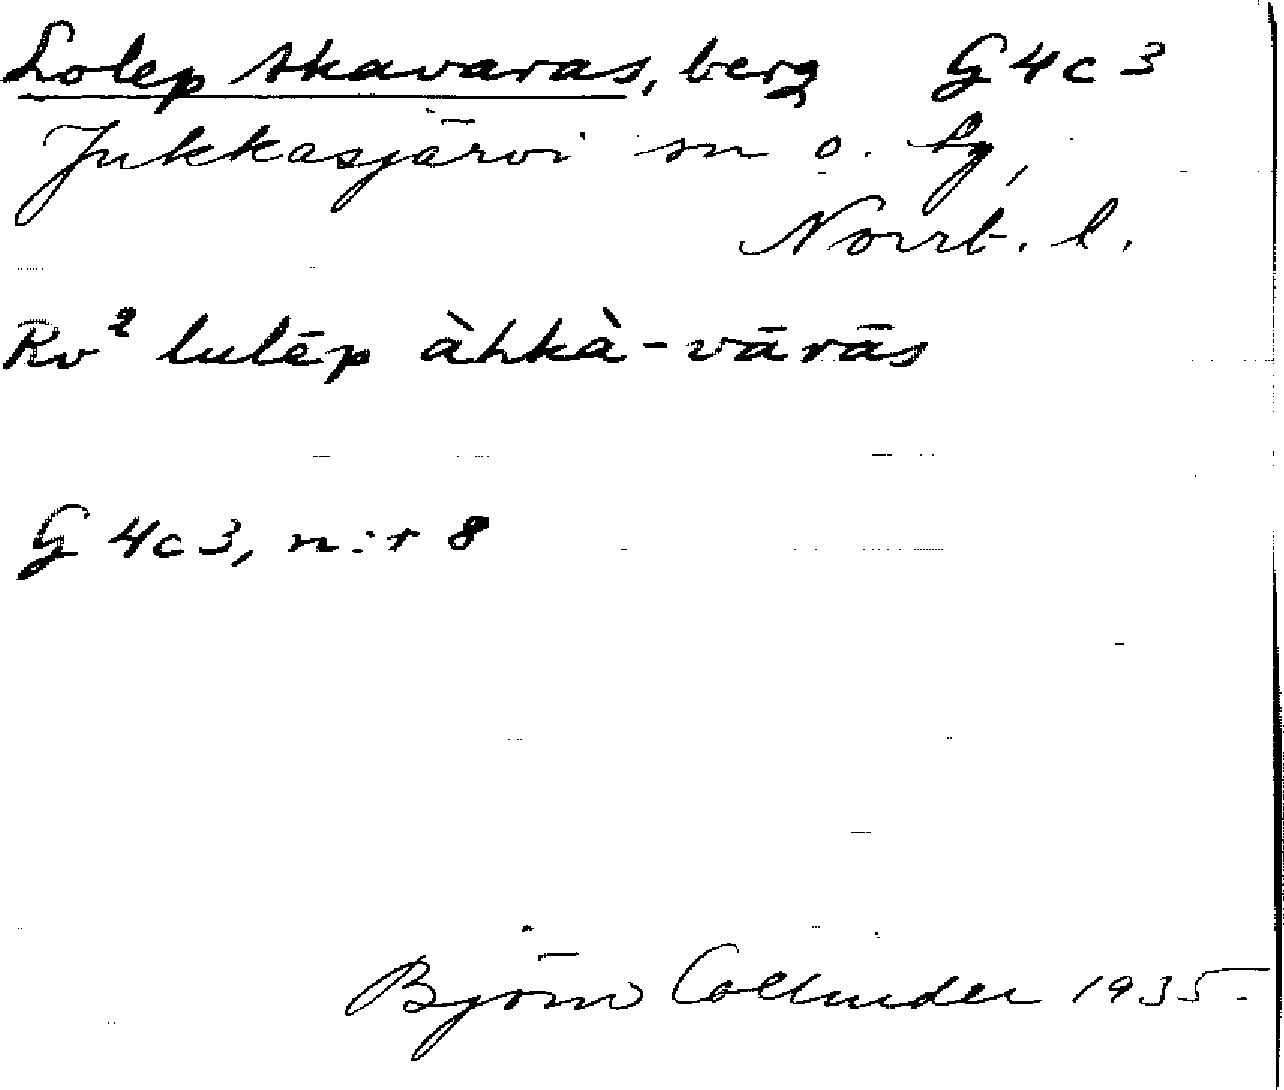 Lolep Akavaras, berg G4c3
Jukkasjärvi sn o. lg,
Norrb. l.
Rv² lulēp àhkà-vārās
G 4c3, n:r 8
Björn Collinder 1935.